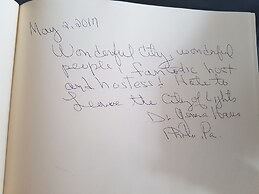 May 2, 2017
Wonderful City, wonderful
people! Fantastic host
and hostess! Hate to
Leave the City of Lights
Dr.
Phila Pa.